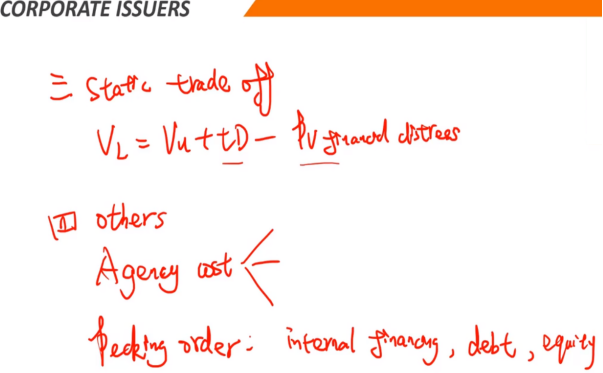 CORPORATE ISSUERS
三 Static trade off
VL = Vu + tD - PV financial distress
四 others
Agency cost
Pecking order: internal financing, debt, equity